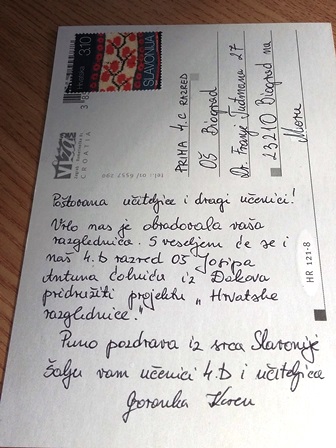 Poštovana učiteljice i dragi učenici!
Vrlo nas je obradovala vaša
razglednica. S veseljem će se i
naš 4.b razred OŠ Josipa
Antuna Ćolnića iz Đakova
pridružiti projektu „Hrvatske
razglednice."
Puno pozdrava iz srca Slavonije
šalju vam učenici 4.D i učiteljica
Goranka
PRIMA 4.C RAZRED
OŠ Biograd
Dr. Franje Tuđmana 27
23210 Biograd na
Moru
3.10
SLAVONIJA
CROATIA
HR 121-8